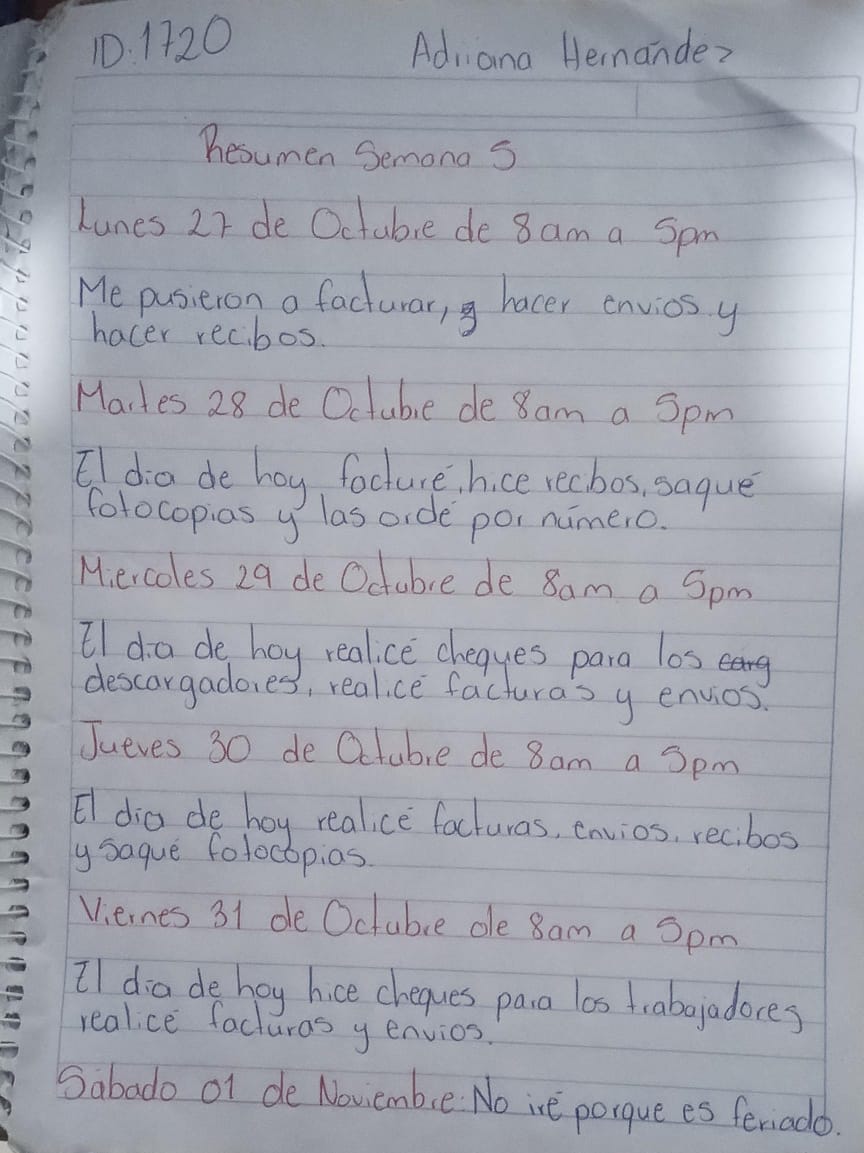 ID.1720 Adriana Hernández
Resumen Semana 5
Lunes 27 de Octubre de 8am a 5pm
Me pusieron a facturar, y hacer envios y
hacer recibos.
Martes 28 de Octubre de 8am a 5pm
El dia de hoy facturé, hice recibos, saqué
fotocopias y las ordé por número.
Miercoles 29 de Octubre de 8am a 5pm
El dia de hoy realicé cheques para los carg
descargadores, realicé facturas y envios.
Jueves 30 de Octubre de 8am a 5pm
El dia de hoy realicé facturas, envios, recibos
y saqué fotocopias.
Viernes 31 de Octubre de 8am a 5pm
El dia de hoy hice cheques para los trabajadores
realicé facturas y envios.
Sábado 01 de Noviembre: No iré porque es feriado.